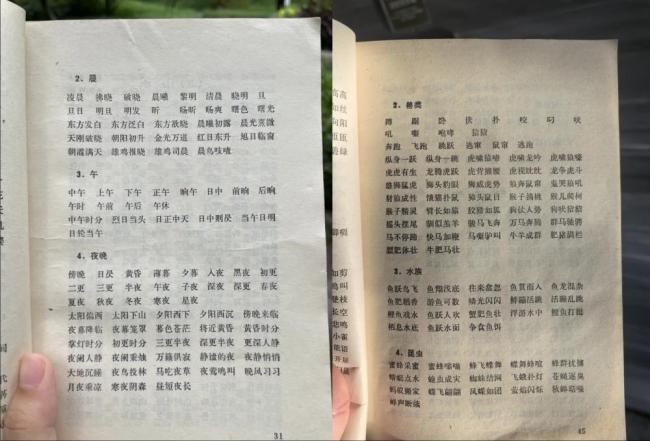 2、晨
凌晨 拂晓 破晓 晨曦 黎明 清晨 晓明 旦
旦日 明日 明发 昕 旸昕 旸爽 曙色 曙光
东方发白 东方泛白 东方欲晓 晨曦初露 晨光熹微
天刚破晓 朝阳初升 金光万道 红日东升 旭日临窗
朝霞满天 雄鸡报晓 雄鸡司晨 晨鸟吱喳
3、午
中午 上午 下午 正午 晌午 日中 前晌 后晌
午时 午前 午后 午休
中午时分 烈日当头 日正中天 日中则昃 当午日明
日轮当午
4、夜晚
傍晚 日昃 黄昏 薄暮 夕暮 入夜 黑夜 初更
二更 三更 半夜 午夜 子夜 深夜 深更 春夜
夏夜 秋夜 冬夜 寒夜 星夜
太阳偏西 太阳下山 夕阳西下 夕阳西沉 傍晚来临
夜幕降临 夜幕笼罩 暮色苍茫 将近黄昏 黄昏时分
掌灯时分 初更时分 三更半夜 深更半夜 更深人静
夜阑人静 夜阑秉烛 万籁俱寂 静谧的夜 夜静悄悄
大地沉睡 夜鸟投林 马吃夜草 夜莺鸣叫 晚风习习
月夜乘凉 寒夜阴森 昼短夜长
31
2、兽类
蹲 蹦 卧 伏 扑 咬 叼 吠
吼 嘶 咆哮 狺狺
奔跑 飞跑 跳跃 逃窜 鼠窜 逃跑
纵身一跃 纵身一跳 虎啸狼嚎 虎啸龙吟 虎啸猿啼
虎虎有生 龙腾虎跃 虎背熊腰 虎视眈眈 龙争虎斗
雄狮猛虎 狮头豹眼 狮威虎势 狼奔鼠窜 鬼哭狼吼
豺狼成性 饿猫扑鼠 獐头鼠目 猴子摘桃 猴儿爬树
猴子精灵 臂长如猿 狡猾如狐 狗仗人势 狗吠狺狺
摇头摆尾 驯似羔羊 骏马飞奔 万马奔腾 群马驰骋
马不停蹄 快马加鞭 马嘶驴叫 牛羊成群 肥猪满栏
膘肥体壮 牛肥马壮
3、水族
鱼跃鸟飞 鱼翔浅底 往来翕忽 鱼贯而入 鱼龙混杂
鱼肥稻香 游鱼可数 鳞光闪闪 鲜蹦活跳 活蹦乱跳
鲤鱼戏水 鱼跃人欢 蟹肥鱼壮 浮游水中 鲤鱼打挺
栖息水底 鱼跃水面 争食鱼饵
4、昆虫
蜜蜂采蜜 蜜蜂嗡嗡 蜂飞蝶舞 蝶舞蜂喧 蜂群扰攘
蜻蜓点水 蝗虫成灾 蜘蛛结网 飞蛾扑灯 苍蝇逐臭
蚂蚁搬家 蝶飞翩翩 凤蝶如团 萤焰闪烁 秋蝉嘒嘒
蝉声断续
45